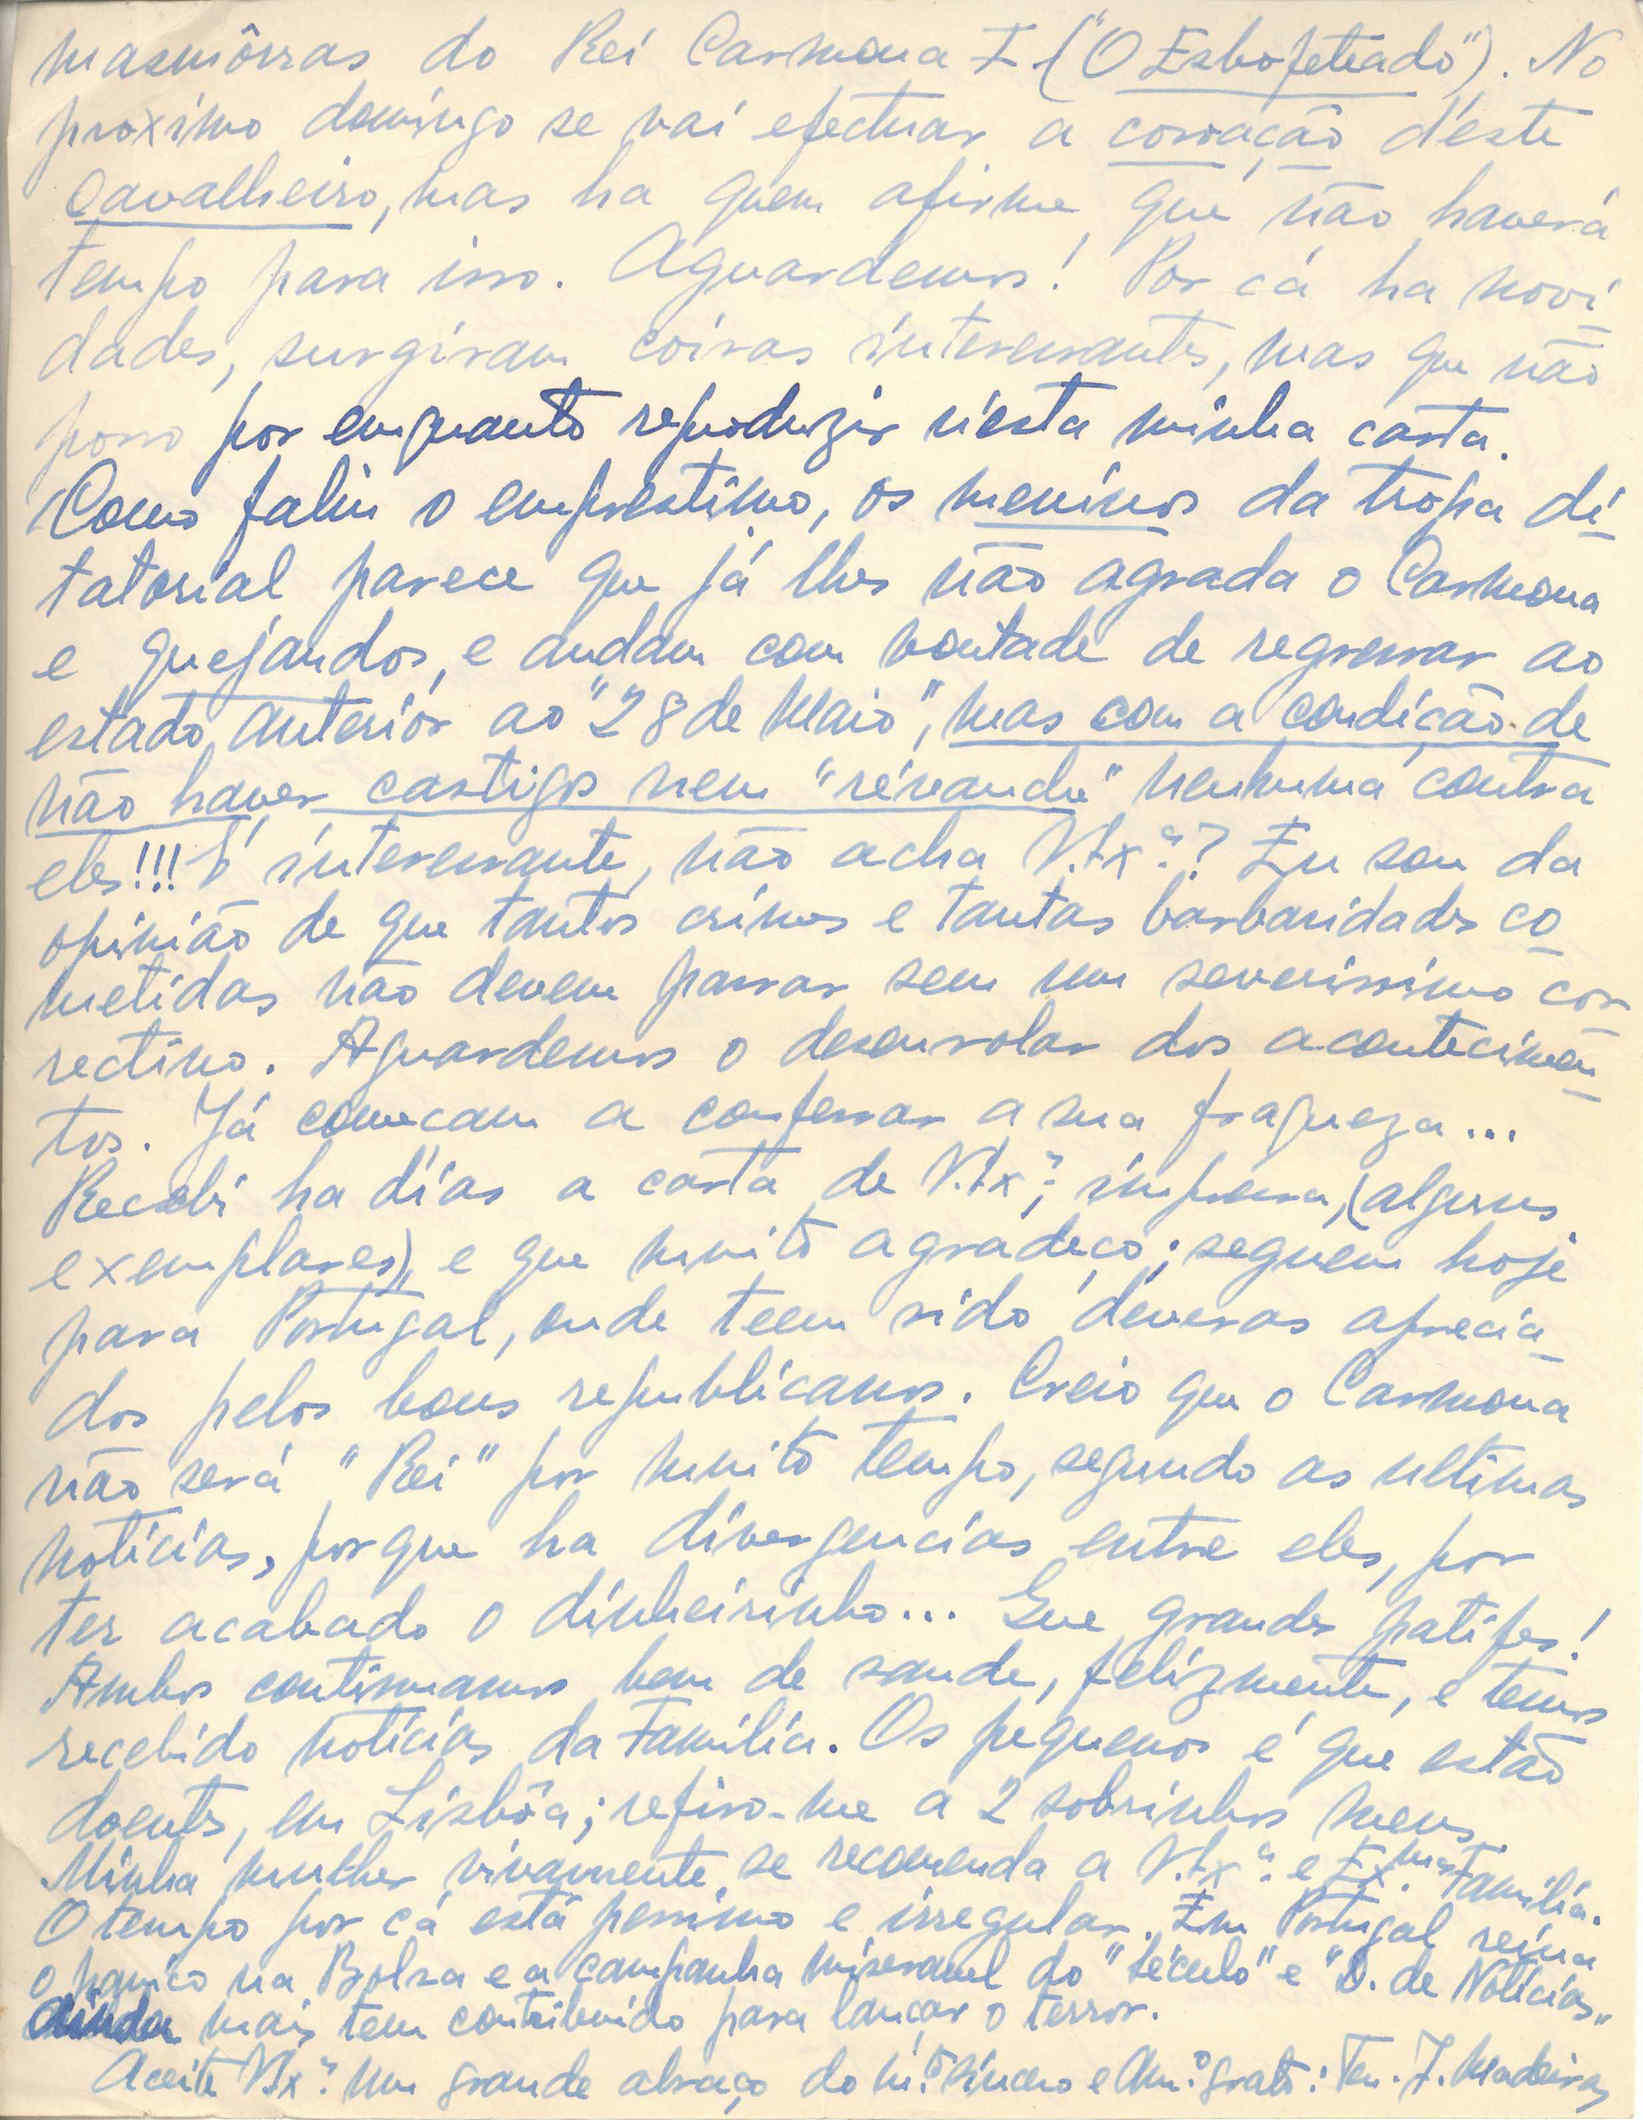 masmôrras do Rei Carmona I ("O Esbofeteado"). No
proximo domingo se vai efectuar a coroação d'éste
cavalheiro, mas ha quem afirme que não haverá
tempo para isso. Aguardemos! Por cá ha novi-
dades, surgiram coisas interessantes, mas que não
posso por emquanto reproduzir n'esta minha carta.
Como faliu o emprestimo, os meninos da tropa di-
tatorial parece que já lhes não agrada o Carmona
e quejandos, e andam com vontade de regressar ao
estado anterior ao "28 de Maio", mas com a condicão de
não haver castigo nem "révanche" nenhuma contra
eles!!! É interessante, não acha V. Exª.? Eu sou da
opinião de que tantos crimes e tantas barbaridades co-
metidas não devem passar sem um severissimo cor-
rectivo. Aguardemos o desenrolar dos acontecimen-
tos. Já comecam a confessar a sua fraqueza...
Recebi ha dias a carta de V. Exª, impressa, (alguns
exemplares), e que muito agradeço; seguem hoje
para Portugal, onde teem sido deveras aprecia-
dos pelos bons republicanos. Creio que o Carmona
não será "Rei" por muito tempo, segundo as ultimas
notícias, porque ha divergencias entre eles, por
ter acabado o dinheirinho... Que grandes patifes!
Ambos continuamos bem de saude, felizmente, e temos
recebido notícias da Familia. Os pequenos é que estão
doentes, em Lisbôa; refiro-me a 2 sobrinhos meus.
Minha mulher vivamente se recomenda a V. Exª. e Ex.mas Familia.
O tempo por cá está pessimo e irregular. Em Portugal reina
o panico na Bolsa e a campanha miseravel do "Século" e "D. de Notícias"
ainda mais tem contribuido para lançar o terror.
Aceite V. Exª. um grande abraço do m.to sincero e Am.º grato: Ten. J. Madeira